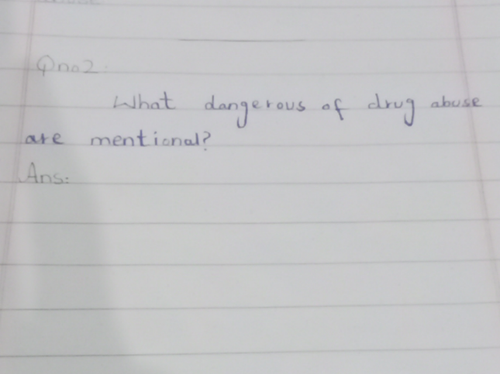 Qno2:
What dangerous of drug abuse
are mentional?
Ans: